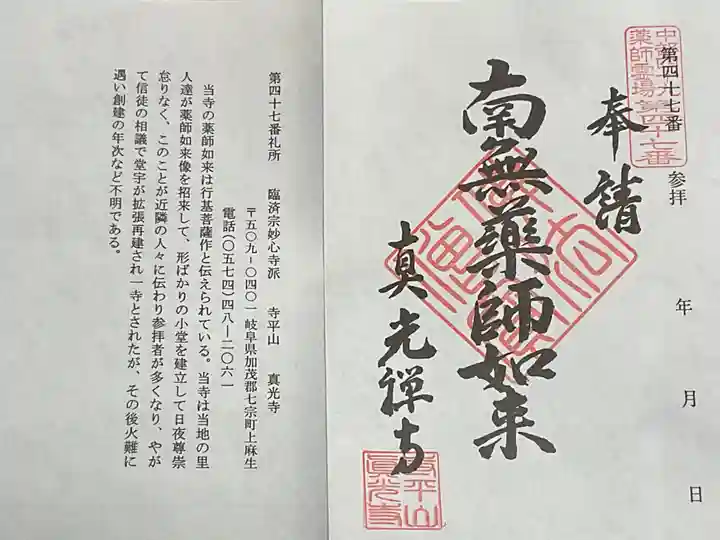 中部四十九
薬師霊場第四十七番
第四十七番
参拝
年
月
日
奉請
南無薬師如来
真光禅寺
寺平山
真光寺
第四十七番礼所 臨済宗妙心寺派 寺平山 真光寺
〒五〇九-〇四〇一岐阜県加茂郡七宗町上麻生
電話(〇五七四)四八―二〇六一
当寺の薬師如来は行基菩薩作と伝えられている。当寺は当地の里
人達が薬師如来像を招来して、形ばかりの小堂を建立して日夜尊崇
怠りなく、このことが近隣の人々に伝わり参拝者が多くなり、やが
て信徒の相議で堂宇が拡張再建され一寺とされたが、その後火難に
遇い創建の年次など不明である。